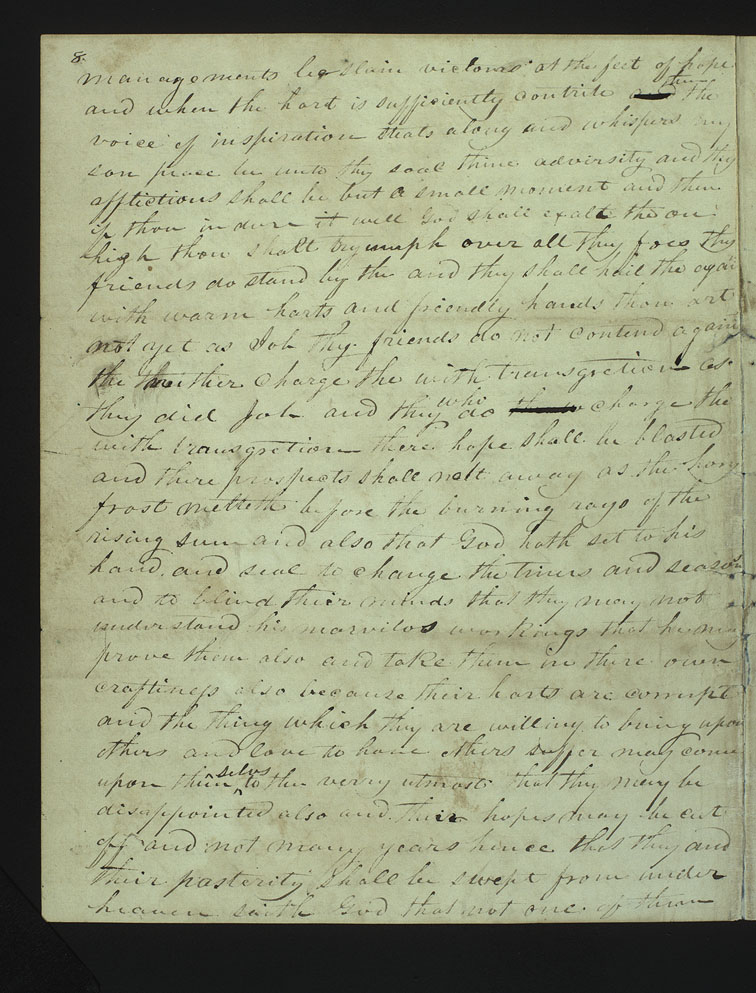 8.
managements lie slain victoms at the feet of hope
and when the hart is sufficiently contrite and then the
voice of inspiration steals along and whispers my
son peace be unto thy soal thine adversity and thy
afflictions shall be but a small moment and then
if thou indure it well God shall exalt the on
high thou shalt tryumph over all thy foes thy
friends do stand by the and they shall hail the agai
with warm harts and friendly hands thou art
not yet as Job thy friends do not contend again
the neither charge the with transgretion as
they did Job and they who do charge the
with transgretion there hope shall be blasted
and there prospects shall melt away as the hory
frost melteth before the burning rays of the
rising sun and also that God hath set to his
hand and seal to change the times and seasons
and to blind their minds that they may not
understand his marvilos workings that he may
prove them also and take them in there own
craftiness also because their harts are corrupt
and the thing which they are willing to bring upon
others and love to have others suffer may come
upon them selvs to the verry utmost that they may be
disappointed also and their hopes may be cut
off and not many years hence that they and
their pasterity shall be swept from under
heaven saith God that not one of them